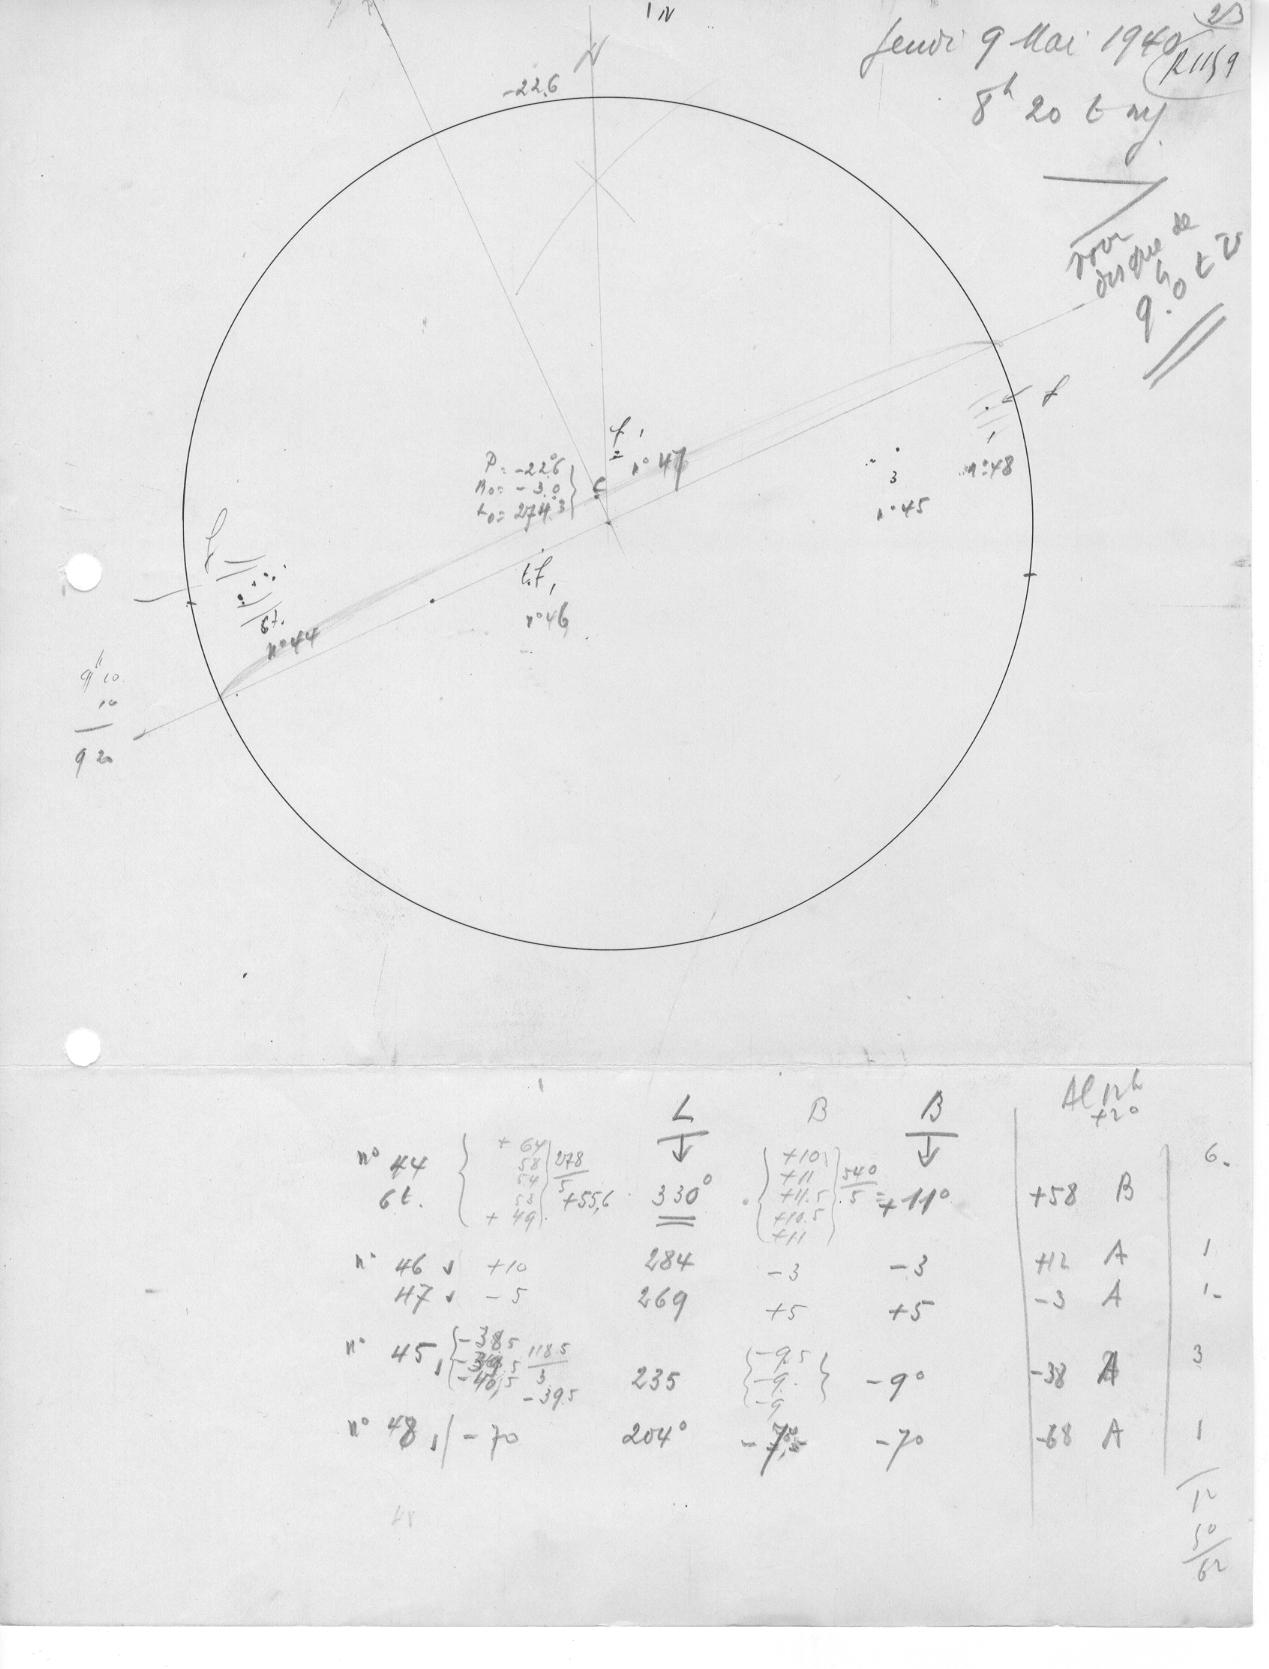 N
23
Jeudi 9 Mai 1940
R1159
8h 20 t
N
-22.6
disque de
9.h0 t
f
n° 47
P = -22°6
B0 = -3.0
L0 = 274°3
C
n° 48
3
n° 45
t.f.
n° 46
6t.
n° 44
9h 10
10
9 20
L B B
+20
n° 44 +64 58 54 53 +49 278/5 +55,6 330° +10 +11 +11.5 +10.5 +11 540/5 = +11° +58 B 6.
6t.
n° 46 +10 284 -3 -3 +12 A 1
47 -5 269 +5 +5 -3 A 1
n° 45 -38.5 -40,5 118.5/3 -39.5 235 -9.5 -9. -9 -9° -38 A 3
n° 48 -70 204° -7° -68 A 1
12
50
62
48